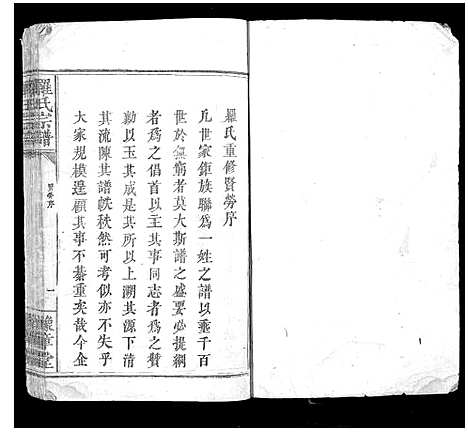 羅氏重修賢勞序
凡世家鉅族聯為一姓之譜以垂千百
世於無窮者莫大斯譜之盛要必提綱
者為之倡首以主其事同志者為之贊
勷以玉其成是其所以上溯其源下清
其流陳其譜帙秩然可考似亦不失乎
大家規模逞顧其事不綦重矣哉今企
羅氏宗譜
賢勞序
一
豫章堂